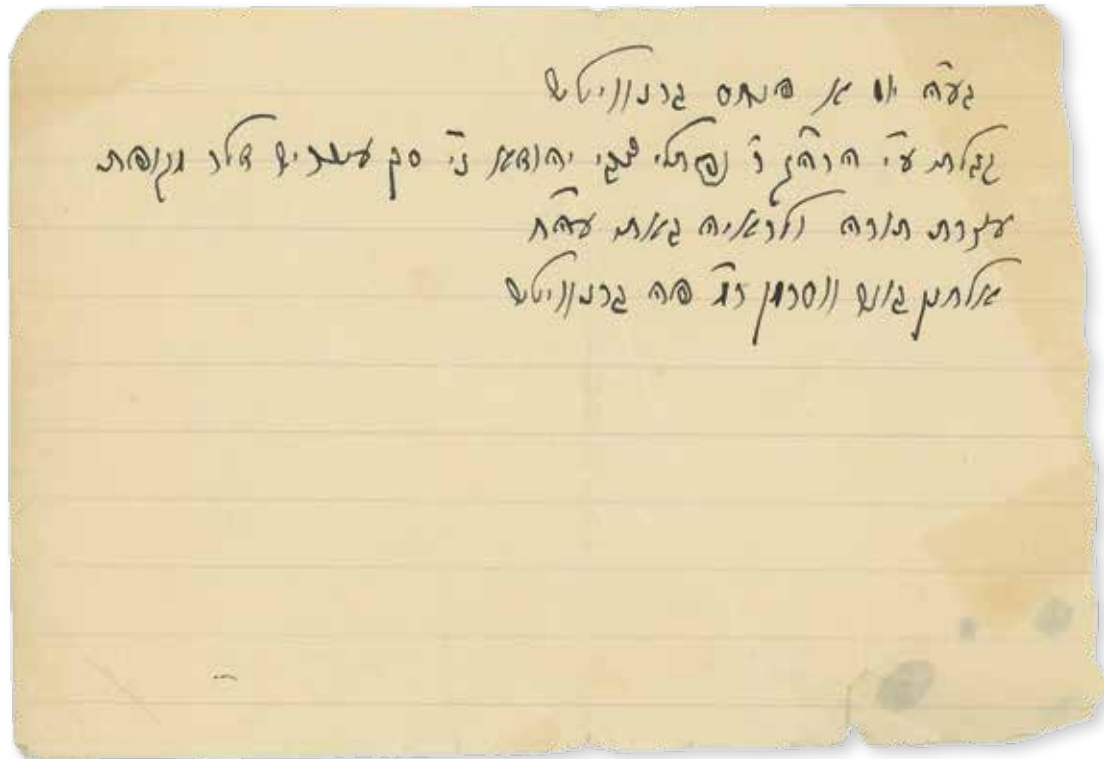 בע״ה יום א פנחס ברנוויטש
קבלתי ע״י הרה״ג ר׳ נפתלי צבי יהודא ני׳ סך עשרים דולר מקופת
עזרת תורה ולראיה באתי עה״ח
אלחנן בונם ווסרמן ר״מ פה ברנוויטש